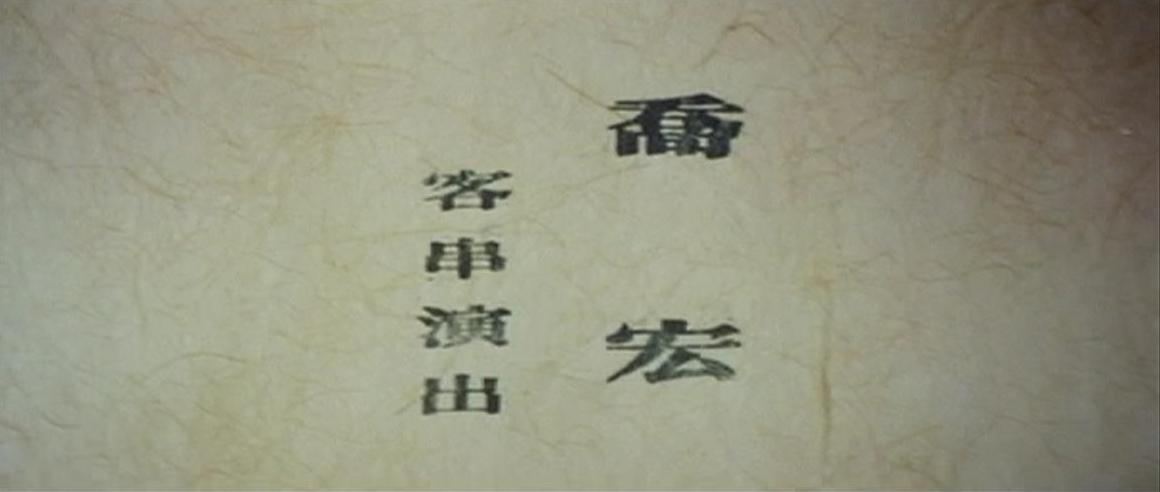 喬宏
客串演出